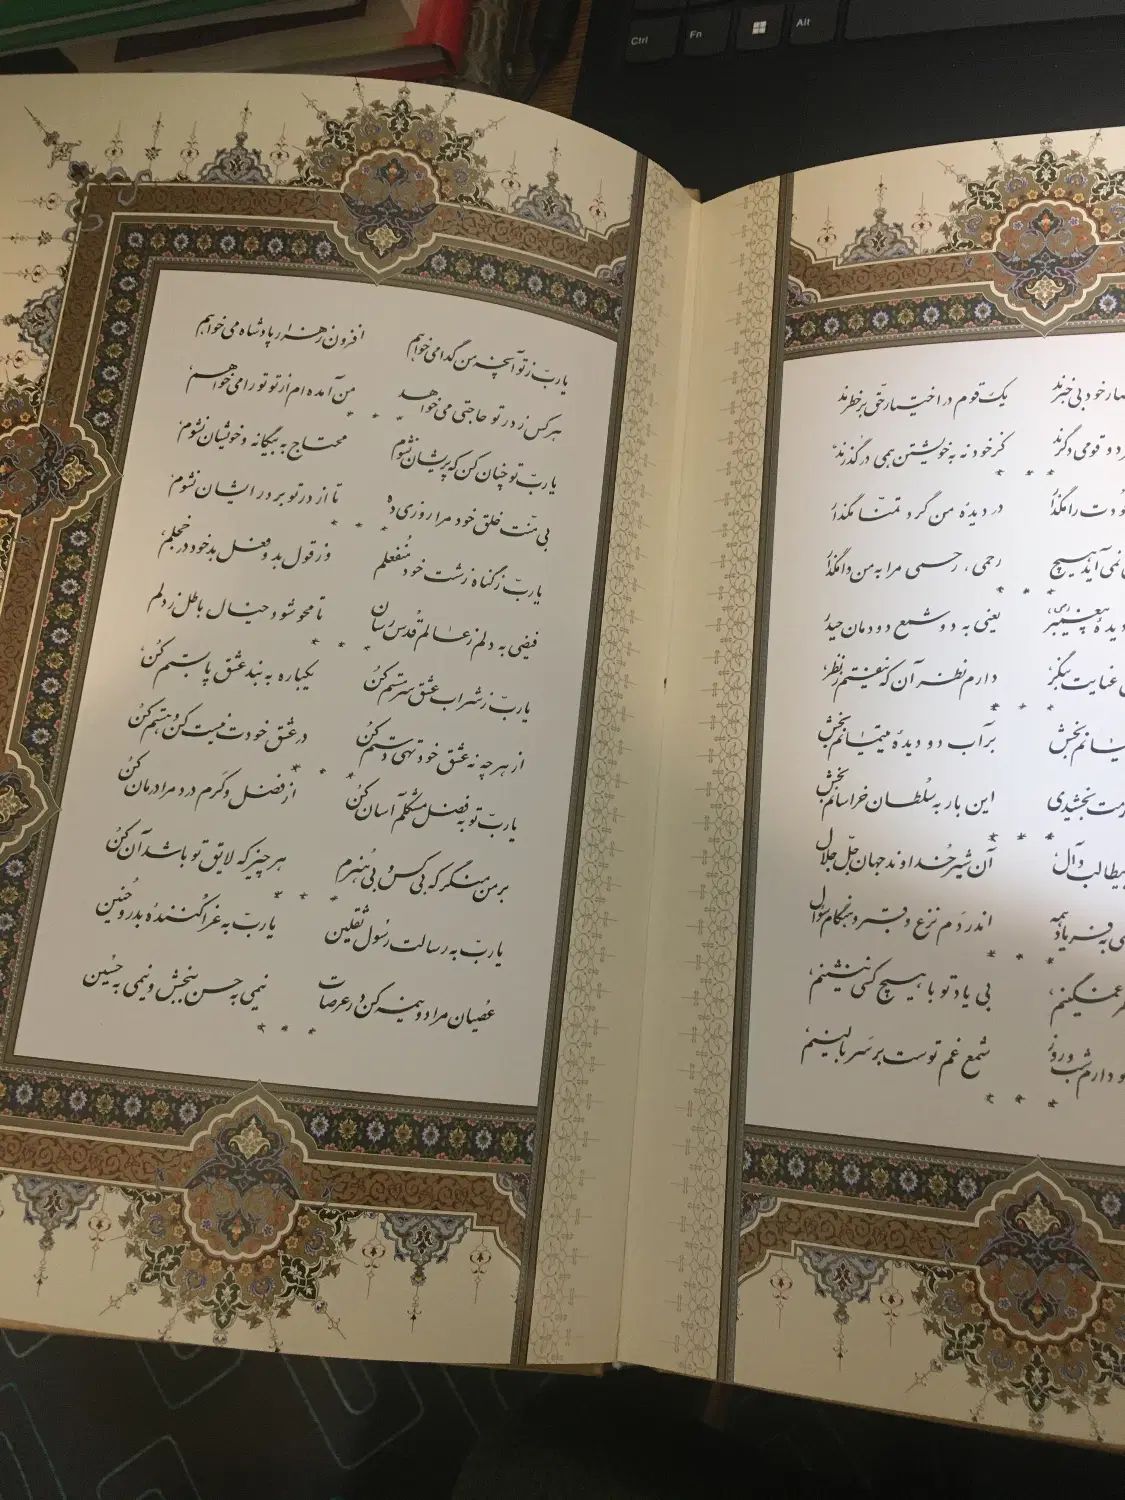 Ctrl Fn Alt
خود بی خبرند یک قوم در اختیار حق بر خطرند
و قومی دگرند کز خود نه به خویشتن همی درگذرند
* * *
را مگذار در دیدهٔ من گرد تمنّا مگذار
نمی آید هیچ رحمی، رحمی مرا به من وامگذار
* * *
دیدهٔ پیغمبر یعنی به دو شمع دودمان حیدر
عنایت بنگر دارم نظر آن که نیفتم ز نظر
* * *
بخش بر آب دو دیدهٔ یتیمانم بخش
بخشیدی این بار به سلطان خراسانم بخش
* * *
و آل آن شیر خداوند جهان جلّ جلال
به فریاد همه اندر دم نزع و قبر و هنگام سؤال
* * *
غمگینم بی یاد تو با هیچ کسی ننشینم
دارم شب و روز شمع غم توست بر سر بالینم
* * *
یا ربّ ز تو آنچه من گدا می خواهم افزون ز هزار پادشاه می خواهم
هر کس ز در تو حاجتی می خواهد من آمده ام از تو تو را می خواهم
* * *
یا ربّ تو چنان کن که پریشان نشوم محتاج به بیگانه و خویشان نشوم
بی منّت خلق خود مرا روزی ده تا از در تو بر در ایشان نشوم
* * *
یا ربّ ز گناه زشت خود منفعلم وز قول بد و فعل بد خود خجلم
فیضی به دلم ز عالم قدس رسان تا محو شود خیال باطل ز دلم
* * *
یا ربّ ز شراب عشق سرمستم کن یکباره به بند عشق پابستم کن
از هر چه نه عشق خود تهی دستم کن در عشق خودت نیست کن و هستم کن
* * *
یا ربّ تو به فضل مشکلم آسان کن از فضل و کرم درد مرا درمان کن
بر من منگر که بی کس و بی هنرم هر چیز که لایق تو باشد آن کن
* * *
یا ربّ به رسالت رسول ثقلین یا ربّ به غزا کنندهٔ بدر و حنین
عصیان مرا دو نیمه کن در عرصات نیمی به حسن ببخش و نیمی به حسین
* * *